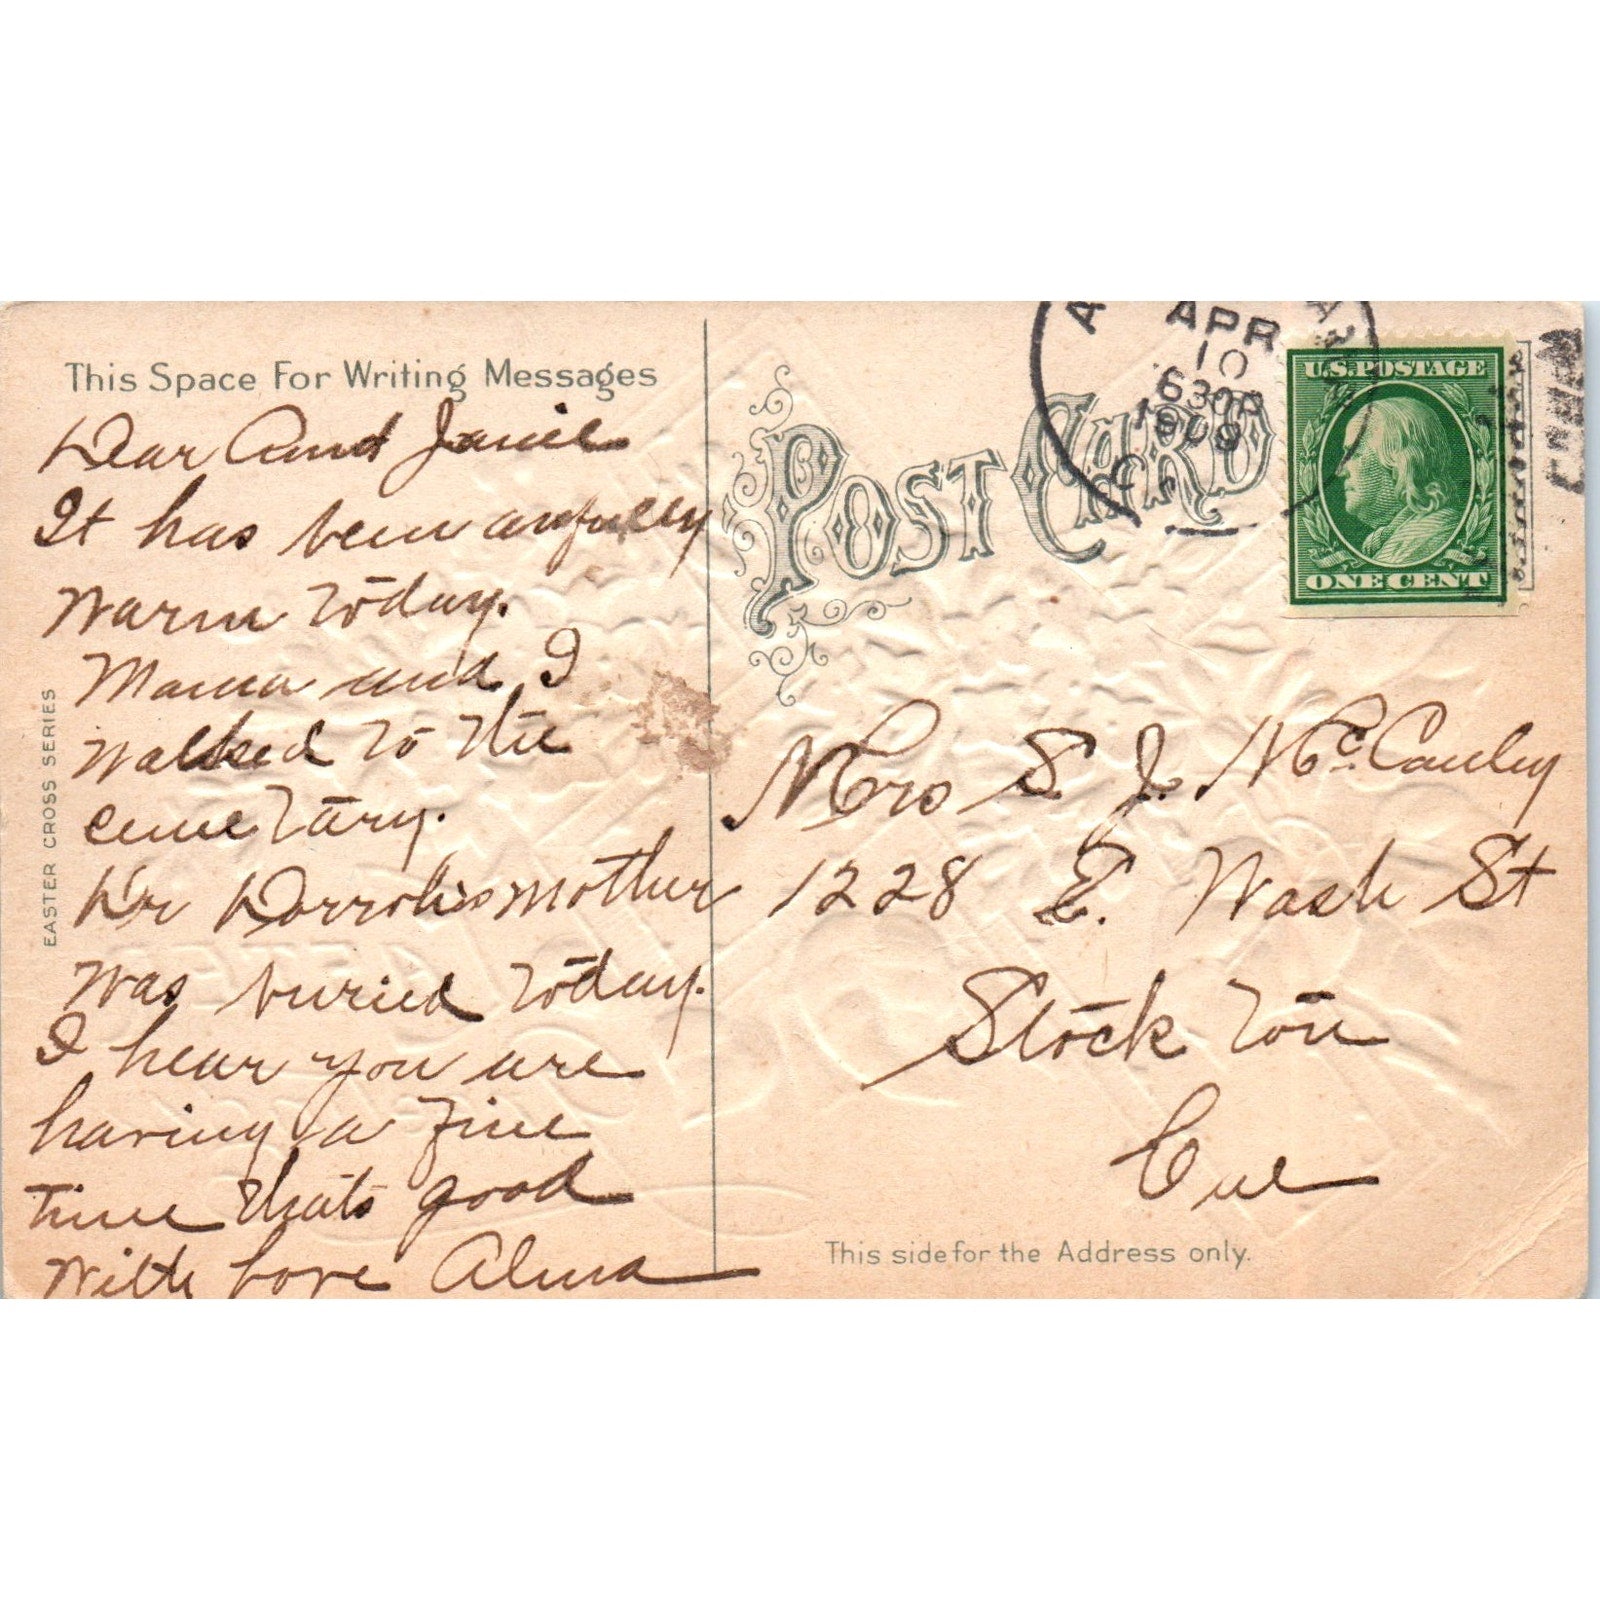 This Space For Writing Messages
Dear Aunt Janie
It has been awfully
warm today.
Mama and I
walked to the
cemetary.
Dr mother
was buried today.
I hear you are
having a fine
time thats good
With love Alma
EASTER CROSS SERIES
POST CARD
APR
10
630P
1909
U.S. POSTAGE
ONE CENT
Mrs S. J. McCauley
1228 E. Wash St
Stockton
Cal
This side for the Address only.